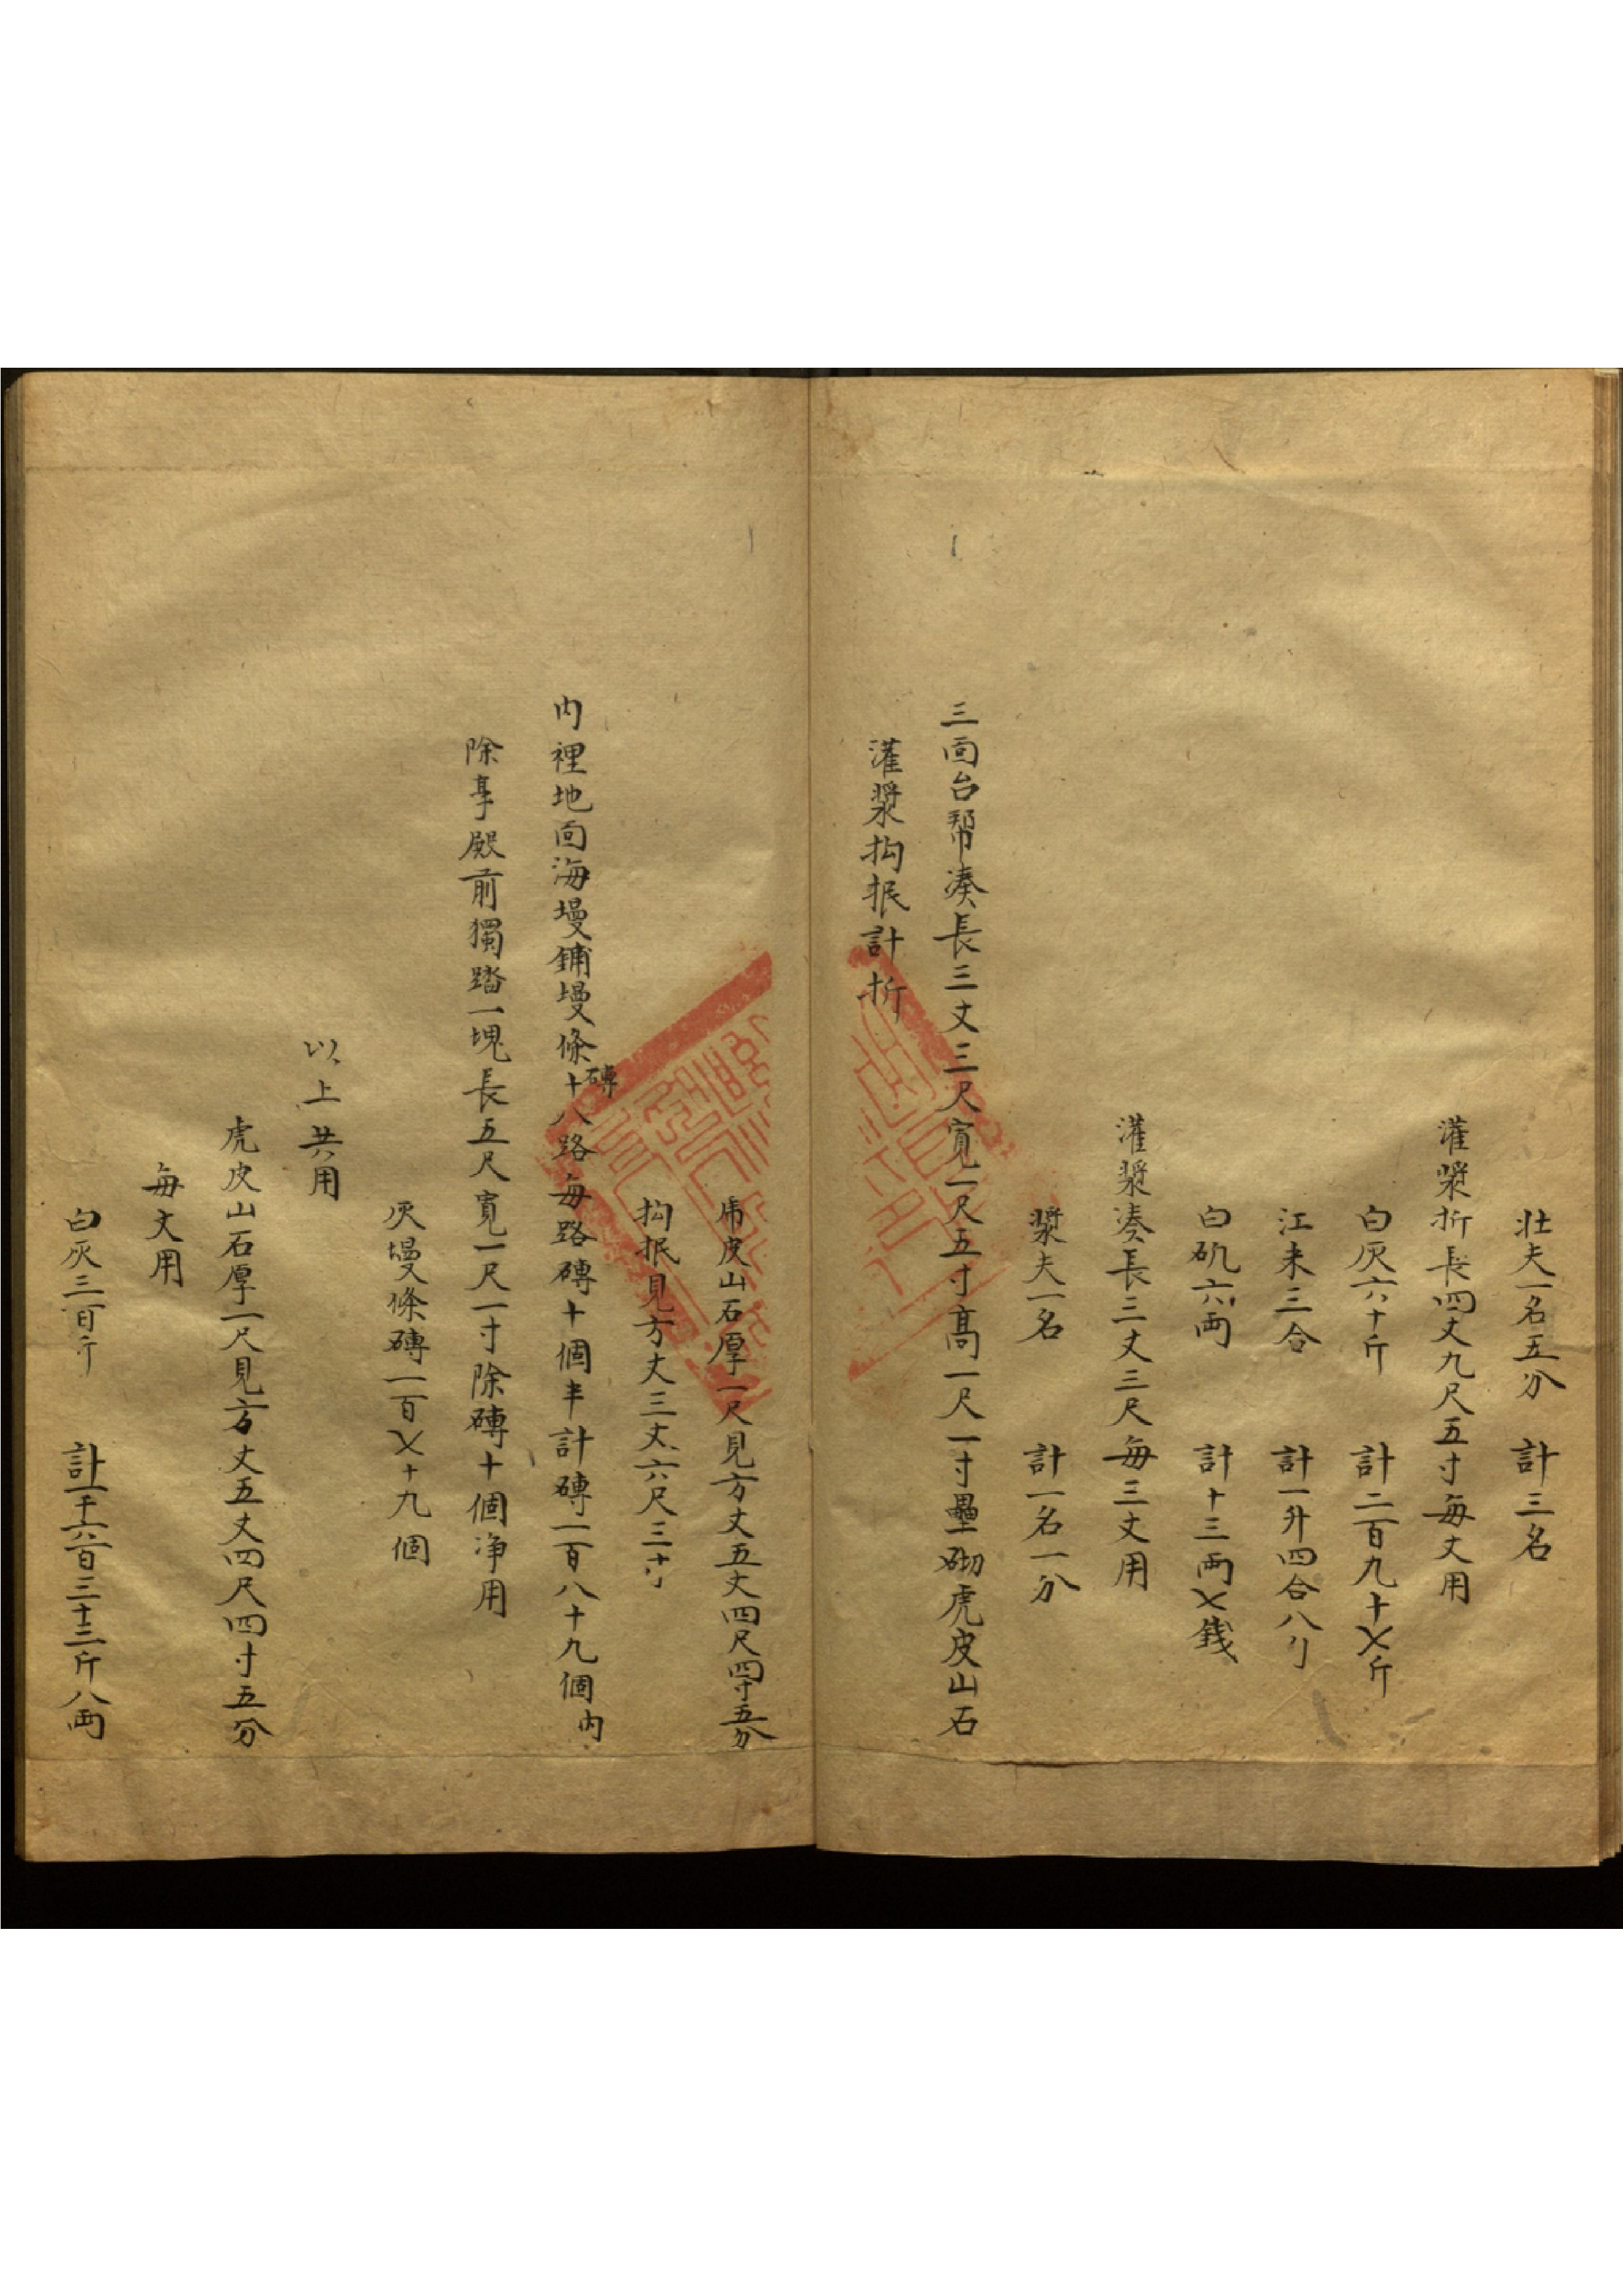 壮夫一名五分　計三名
灌漿折長四丈九尺五寸每丈用
白灰六十斤　計二百九十〤斤
江米三合　計一升四合八勺
白矾六両　計十三両〤錢
灌漿湊長三丈三尺每三丈用
漿夫一名　計一名一分
三面台幇湊長三丈三尺寬一尺五寸高一尺一寸壘砌虎皮山石
灌漿抅抿計折
虎皮山石厚一尺見方丈五丈四尺四寸五分
抅抿見方丈三丈六尺三寸
内裡地面海墁鋪墁條磚十八路每路磚十個半計磚一百八十九個内
除享殿前獨踏一塊長五尺寬一尺一寸除磚十個净用
灰墁條磚一百〤十九個
以上共用
虎皮山石厚一尺見方丈五丈四尺四寸五分
每丈用
白灰三百斤　計一千六百三十三斤八両